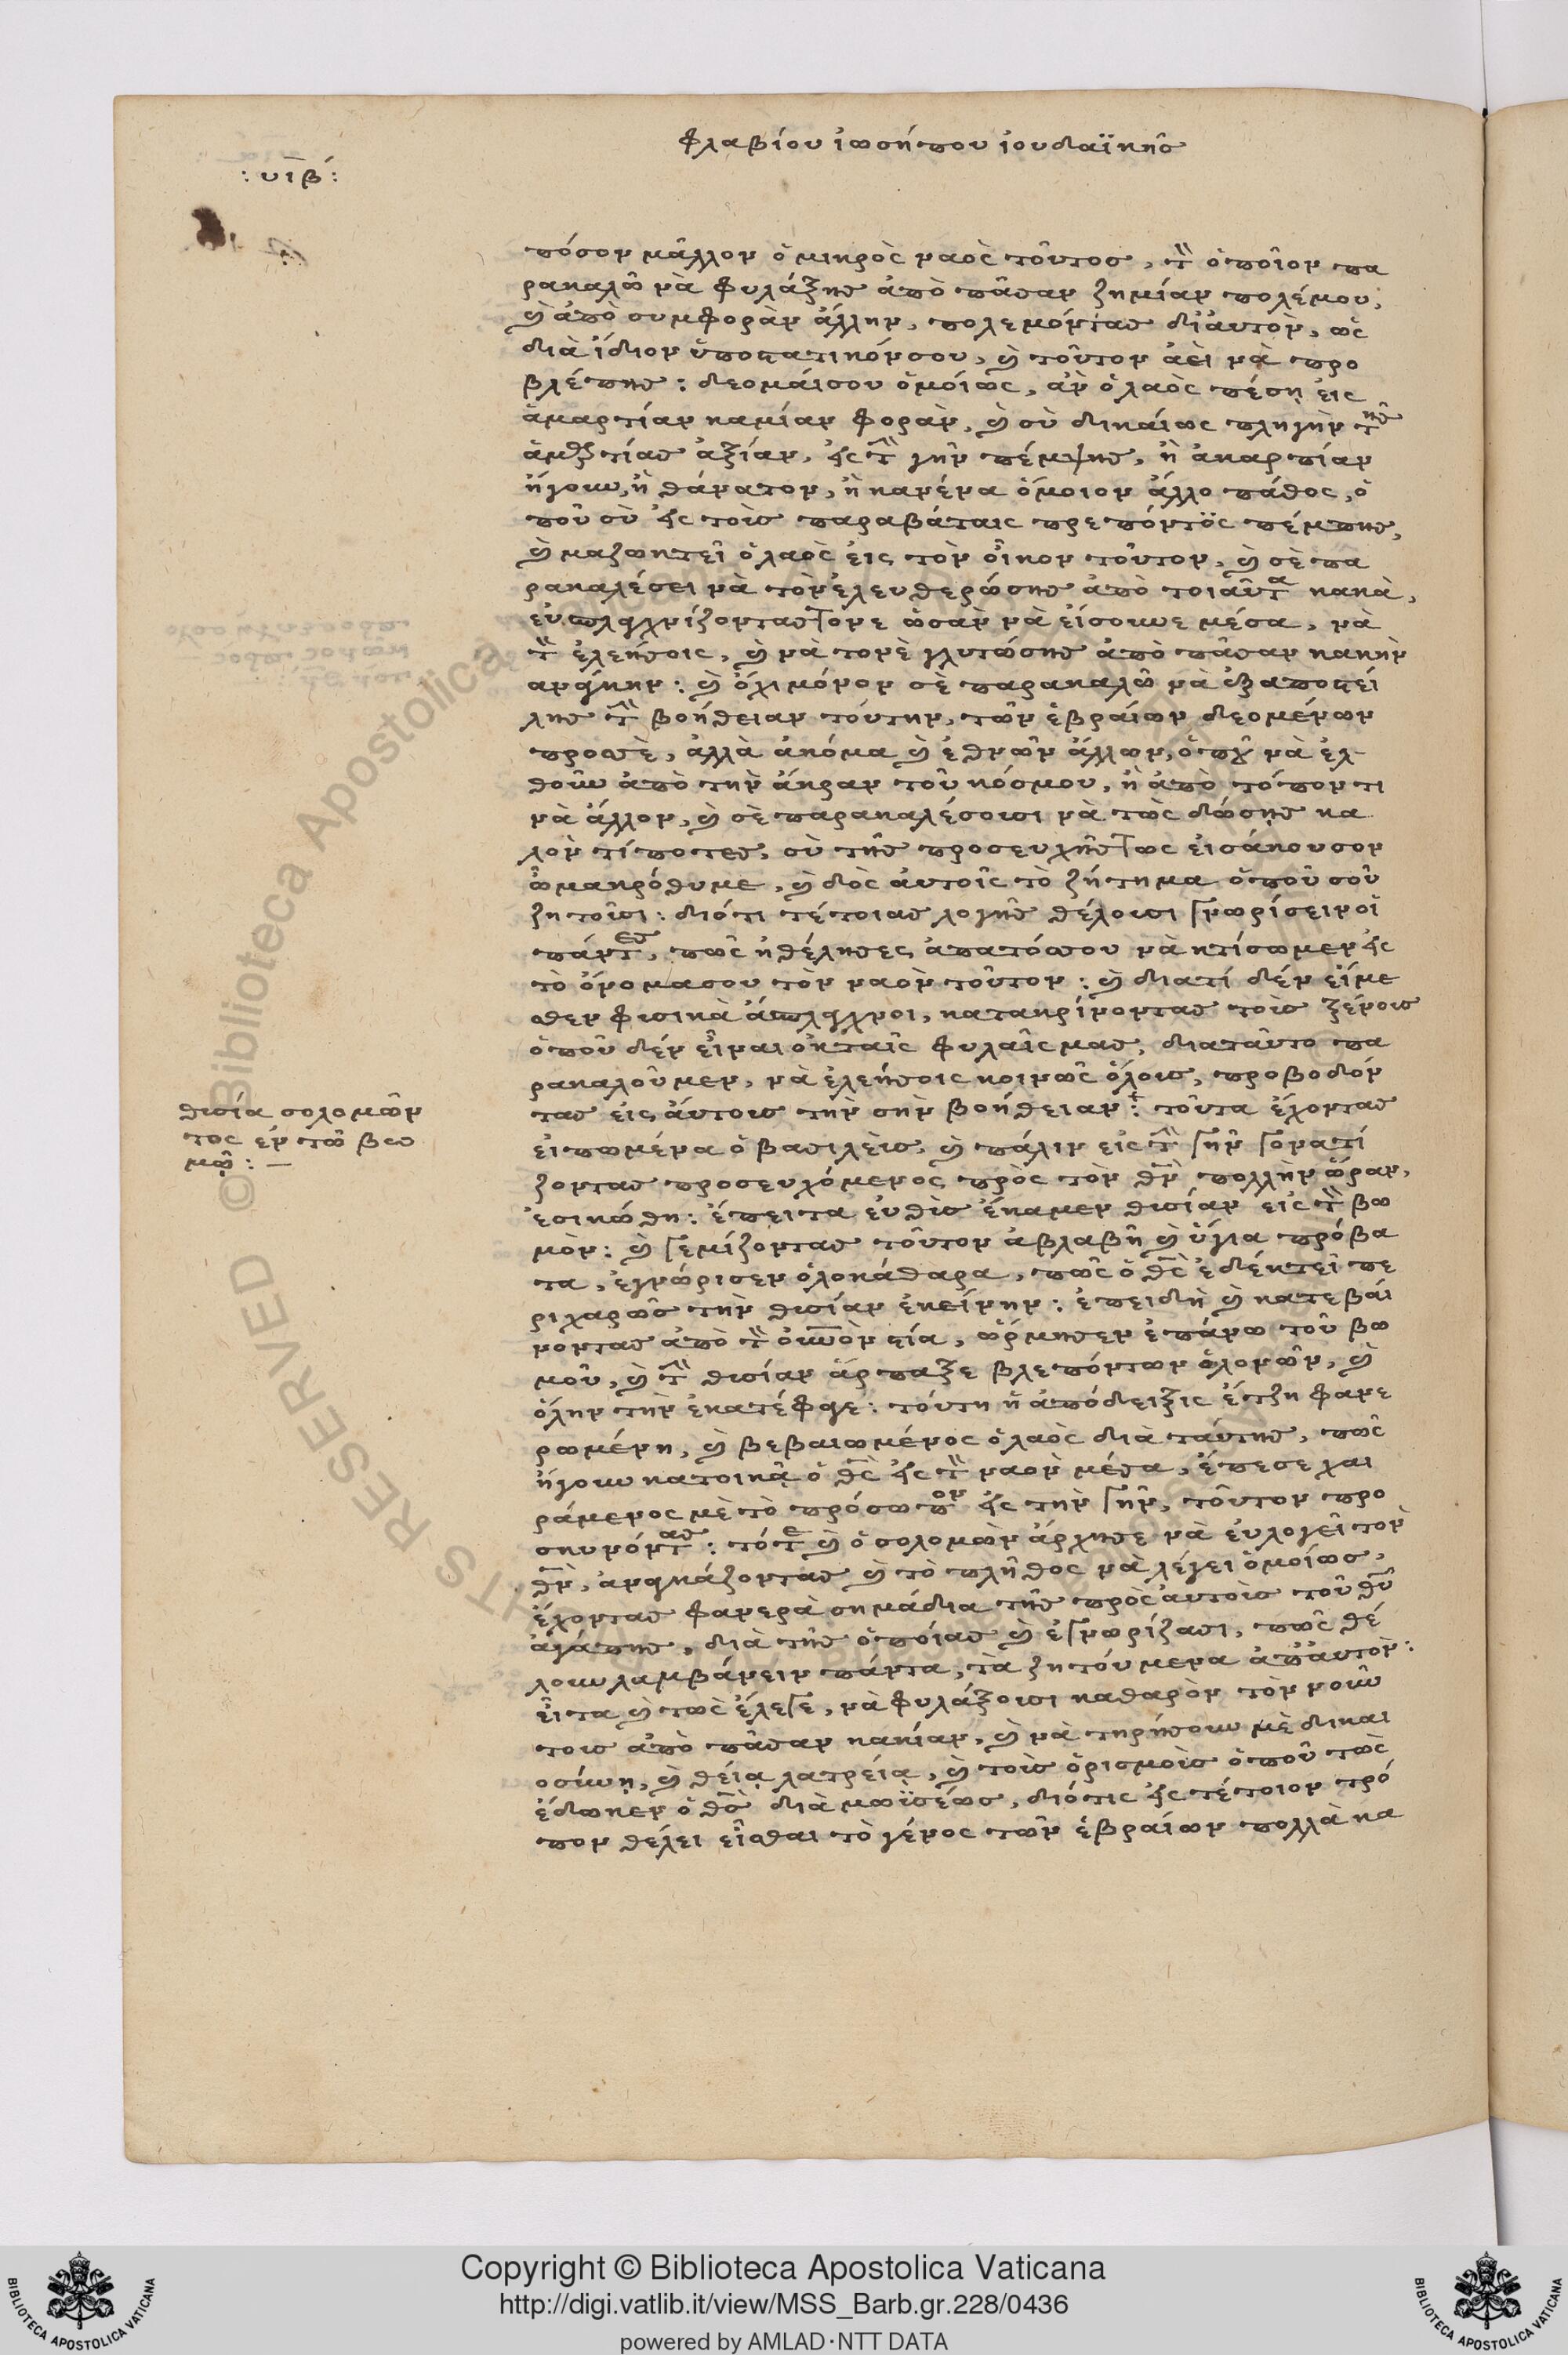 φλαβίου ἰωσήπου ἰουδαϊκῆς
: υιβ :
πόσον μᾶλλον ὁ μικρὸς ναὸς τοῦτος, τὸν ὁποῖον πα
ρακαλῶ νὰ φυλάξης ἀπὸ πᾶσαν ζημίαν πολέμου,
καὶ ἀπὸ συμφορὰν ἄλλην, πολεμόντας δι' αυτὸν, ὡς
διὰ ἴδιον ὑποστατικόν σου, καὶ τοῦτον ἀεὶ νὰ προ
βλέπης : δεομαίσου ὁμοίως, ἀν ὁ λαὸς πέση εἰς
ἁμαρτίαν καμίαν φορὰν, καὶ σὺ δικαίως πληγὴν τῆς
ἁμαρτίας ἀξίαν, εἰς τὴν γῆν πέμψης, ἢ ἀκαρπίαν
ἤγουν, ἢ θάνατον, ἢ κανένα ὅμοιον ἄλλο πάθος, ὁ
ποῦ σὺ εἰς τοὺς παραβάταις πρεπόντως πέμπης,
καὶ μαζωκτεῖ ὁ λαὸς εἰς τὸν οἶκον τοῦτον, καὶ σὲ πα
ρακαλέσει νὰ τὸν ἐλευθερώσης ἀπὸ τοιαῦτα κακὰ,
εὐσπλαγχνίζοντας τονε ὡσὰν νὰ εἴσουνε μέσα, νὰ
τὸν ἐλεήσοις, καὶ νὰ τονὲ γλυτώσης ἀπὸ πᾶσαν κακὴν
ανάγκην : καὶ ὄχι μόνον σὲ παρακαλῶ νὰ ἐξαποστεί
λης τὴν βοήθειαν τούτην, τῶν ἑβραίων δεομένων
προσσὲ, ἀλλὰ ἀκόμα καὶ ἐθνῶν ἄλλων, ὁποῦ νὰ ἐλ
θοῦν ἀπὸ τὴν ἄκραν τοῦ κόσμου, ἢ ἀπὸ τόπον τι
νὰ ἄλλον, καὶ σὲ παρακαλέσουσι νὰ τῶς δώσης κα
λὸν τίποτες, σὺ τῆς προσευχῆς τως εἰσάκουσον
ὦ μακρόθυμε, καὶ δὸς αὐτοῖς τὸ ζήτημα ὁποῦ σοῦ
ζητοῦσι : διότι τέτοιας λογῆς θέλουσι γνωρίσειν οἱ
πάντες, πῶς ἠθέλησες ἀπατόσσου νὰ κτίσωμεν εἰς
τὸ ὄνομασου τὸν ναὸν τοῦτον : καὶ διατί δέν εἴμε
σθεν φυσικὰ ἄσπλαγχνοι, κατακρίνοντας τοὺς ξένους
ὁποῦ δέν εἶναι ὀκταῖς φυλαῖς μας, διαταῦτο πα
ρακαλοῦμεν, νὰ ἐλεήσοις κοινῶς ὅλους, προβοδόν
τας εἰς αὐτους τὴν σὴν βοήθειαν : τοῦτα ἔχοντας
εἰπωμένα ὁ βασιλεὺς, καὶ πάλιν εἰς τὴν γῆν γονατί
ζοντας προσευχόμενος πρὸς τὸν θν πολλὴν ὥραν,
ἐσικώθη : ἔπειτα εὐθὺς ἔκαμεν θυσίαν εἰς τὸν βω
μὸν : καὶ γεμίζοντας τοῦτον ἀβλαβῆ καὶ ὑγια πρόβα
τα, ἐγνώρισεν ὁλοκάθαρα, πῶς ὁ θς ἐδέκτει πε
ριχαρῶς τὴν θυσίαν ἐκείνην : ἐπειδὴ καὶ κατεβαί
νοντας ἀπὸ τὸν οὐνὸν στία, ὥρμησεν ἐπάνω τοῦ βω
μοῦ, καὶ τὴν θυσίαν ἄρπαξε βλεπόντων ὁλονῶν, καὶ
ὅλην τὴν ἐκατέφαγε : τούτη ἡ ἀπόδειξις ἔτζη φανε
ρωμένη, καὶ βεβαιωμένος ὁ λαὸς διὰ ταύτης, πῶς
ἤγουν κατοικᾶ ὁ θς εἰς τὸν ναὸν μέσα, ἔπεσε χαι
ράμενος μὲ τὸ πρόσωπον εἰς τὴν γῆν, τοῦτον προ
σκυνόντας : τότε καὶ ὁ σολομὼν ἄρχησε νὰ εὐλογεῖ τὸν
θν, αναγκάζοντας καὶ τὸ πλῆθος νὰ λέγει ὁμοίως,
ἔχοντας φανερὰ σημάδια τῆς πρὸς αὐτοὺς τοῦ θυ
ἀγάπης, διὰ τῆς ὁποίας καὶ ἐγνωρίζασι, πῶς θέ
λουν λαμβάνειν πάντα, τὰ ζητούμενα ἀπ' αυτὸν :
εἶτα καὶ τῶς ἔλεγε, νὰ φυλάξουσι καθαρὸν τὸν νοῦν
τους ἀπὸ πᾶσαν κακίαν, καὶ νὰ τηρήσουν μὲ δικαι
οσύνη, καὶ θεία λατρεία, καὶ τοὺς ὁρισμοὺς ὁποῦ τῶς
ἔδωκεν ὁ θς διὰ μωϋσέως, διότις εἰς τέτοιον τρό
πον θέλει εἶσθαι τὸ γένος τῶν ἑβραίων πολλὰ κα
θυσία σολομῶν
τος ἐν τῶ βω
μῷ : —
Copyright © Biblioteca Apostolica Vaticana
http://digi.vatlib.it/view/MSS_Barb.gr.228/0436
powered by AMLAD·NTT DATA
BIBLIOTECA APOSTOLICA VATICANA
BIBLIOTECA APOSTOLICA VATICANA